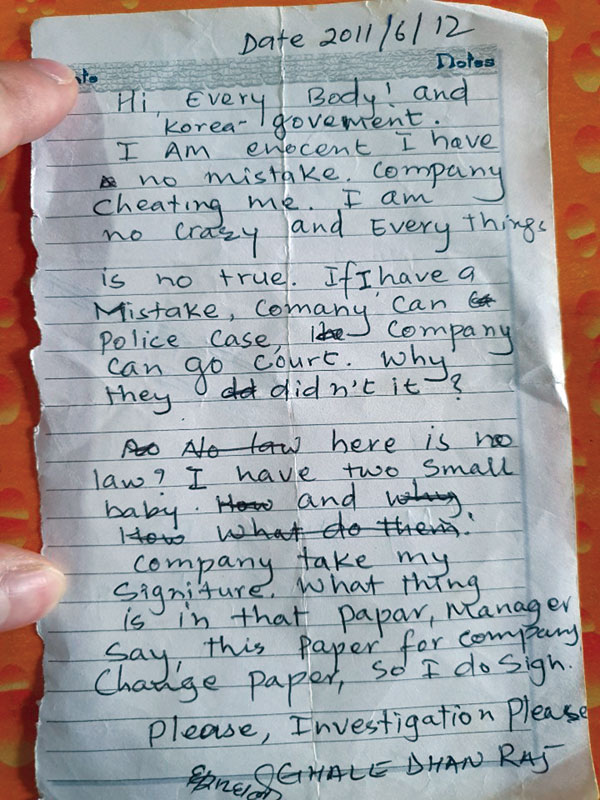 Date 2011/6/12
Notes
Hi, Every Body! and
Korea- goverment.
I AM enocent I have
no mistake. Company
Cheating me. I am
no crazy and Every things
is no true. If I have a
Mistake, comany can
Police case, company
can go court. Why
they didn't it ?
No law here is no
law? I have two small
baby. How and why
How what do them.
company take my
Signiture. What thing
is in that papar, Manager
Say, this Paper for company
Change paper, so I do sign.
Please, Investigation Please
GHALE DHAN RAJ